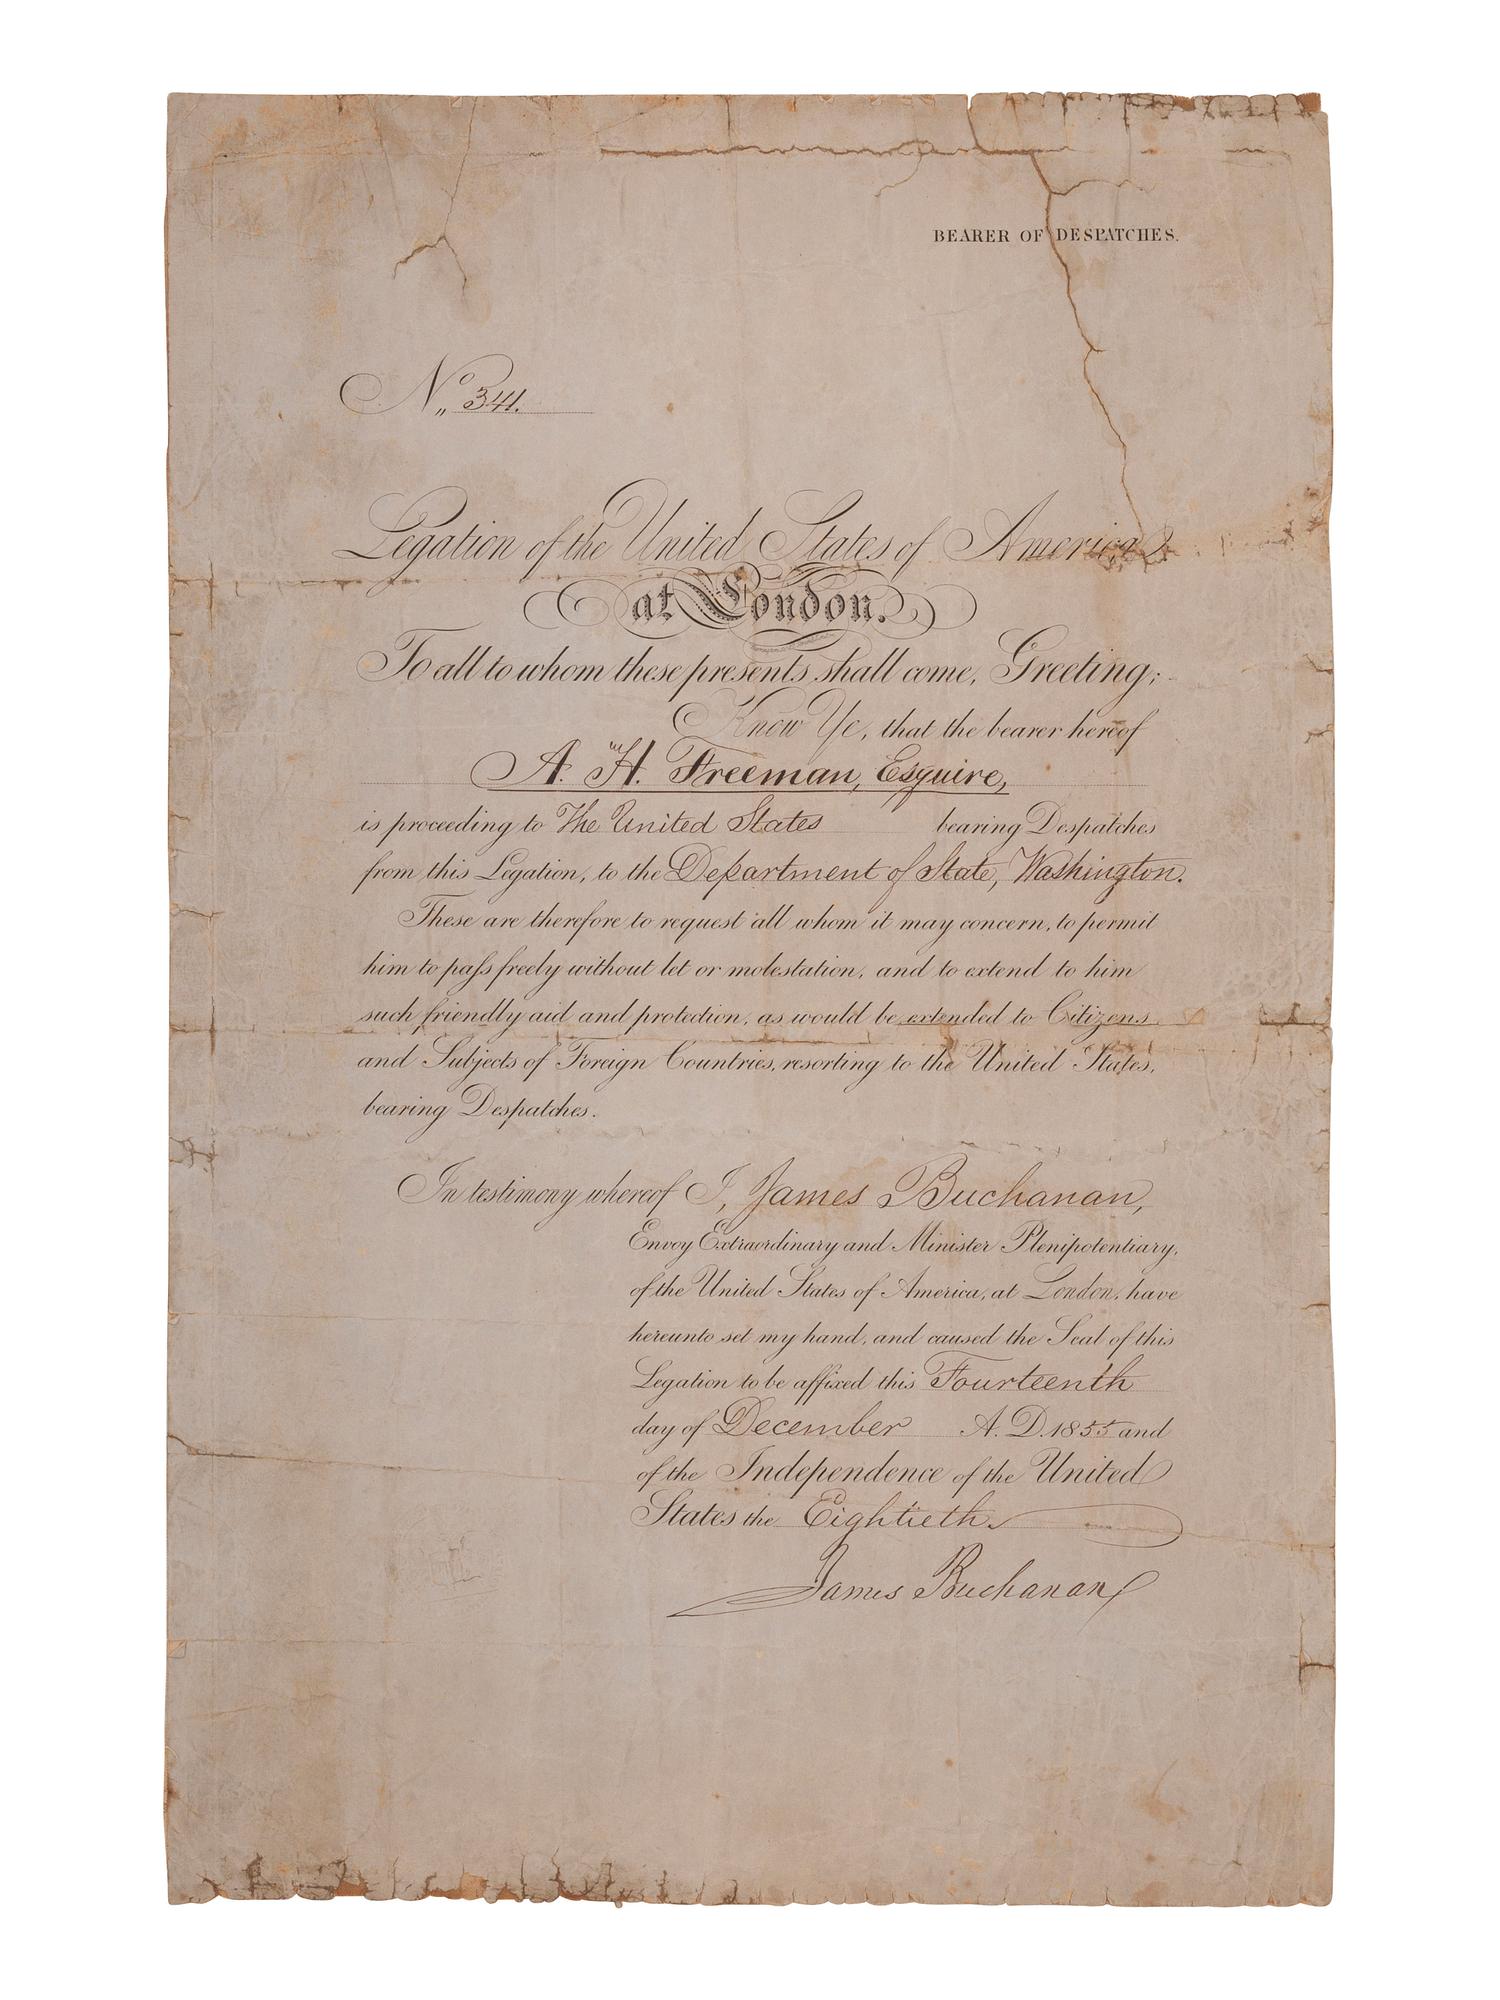 BEARER OF DESPATCHES.
No. 341.
Legation of the United States of America
at London.
To all to whom these presents shall come, Greeting;
Know Ye, that the bearer hereof
A. H. Freeman, Esquire,
is proceeding to The United States bearing Despatches
from this Legation, to the Department of State, Washington.
These are therefore to request all whom it may concern, to permit
him to paſs freely without let or molestation, and to extend to him
such friendly aid and protection, as would be extended to Citizens
and Subjects of Foreign Countries, resorting to the United States,
bearing Despatches.
In testimony whereof I, James Buchanan,
Envoy Extraordinary and Minister Plenipotentiary,
of the United States of America, at London, have
hereunto set my hand, and caused the Seal of this
Legation to be affixed this Fourteenth
day of December A. D. 1855 and
of the Independence of the United
States the Eightieth.
James Buchanan